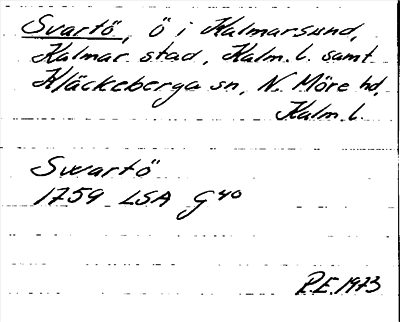 Svartö, ö i Kalmarsund,
Kalmar stad, Kalm. l. samt
Kläckeberga sn, N. Möre hd,
Kalm. l.
Swartö
1759 LSA G40
P.E. 1973